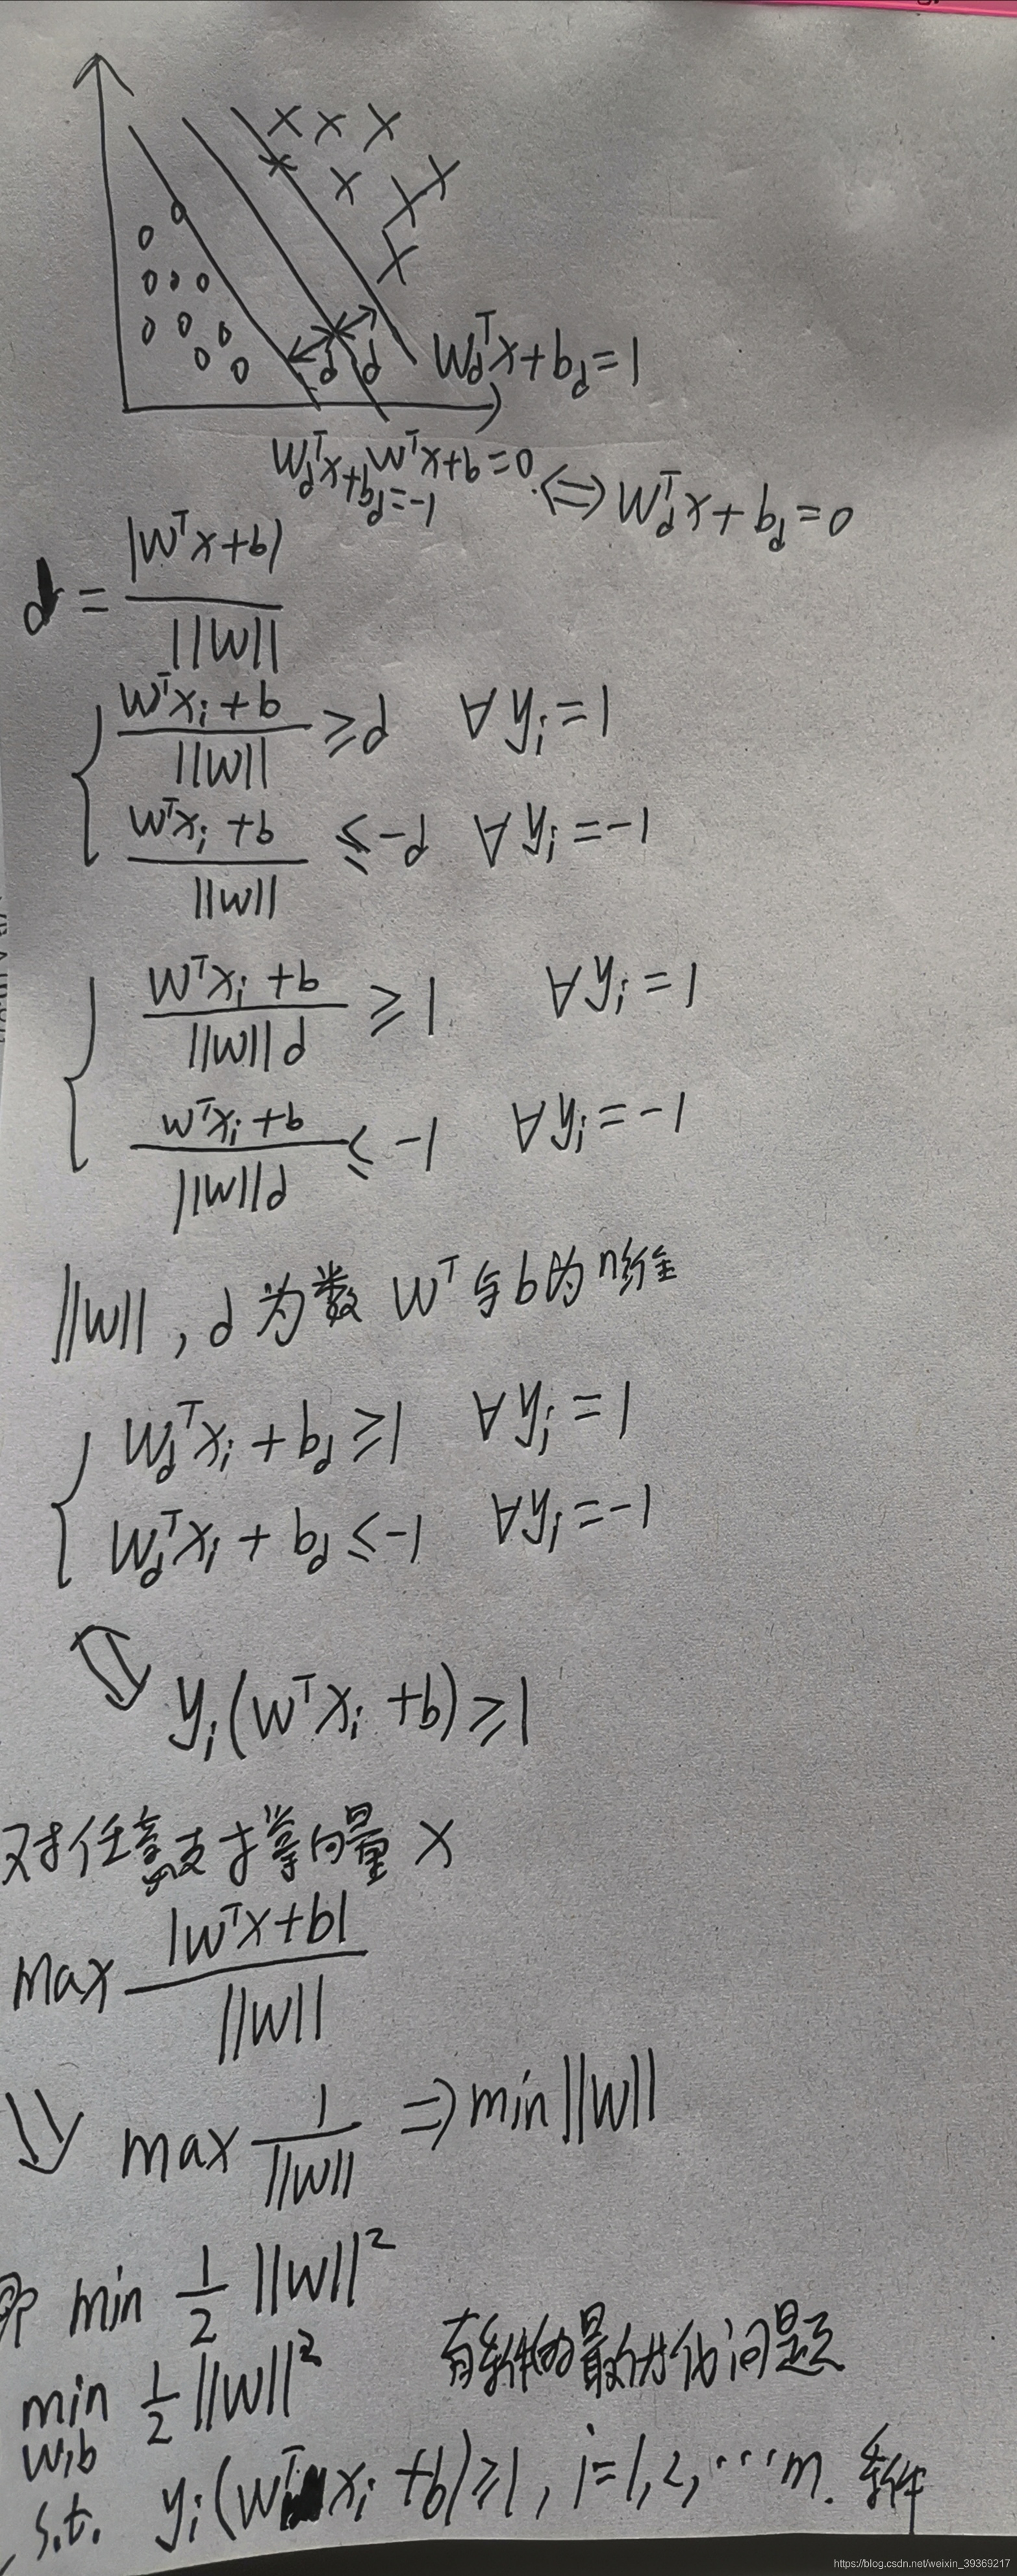 W_d^T x + b_d = 1
d d
W^T x + b = 0
W_d^T x + b_d = -1
⇔ W_d^T x + b_d = 0
d = |W^T x + b| / ||W||
{ (W^T x_i + b) / ||W|| ≥ d ∀ y_i = 1
(W^T x_i + b) / ||W|| ≤ -d ∀ y_i = -1
{ (W^T x_i + b) / ||W||d ≥ 1 ∀ y_i = 1
(W^T x_i + b) / ||W||d ≤ -1 ∀ y_i = -1
||W||, d 为数 W^T 与 b 为 n维
{ W_d^T x_i + b_d ≥ 1 ∀ y_i = 1
W_d^T x_i + b_d ≤ -1 ∀ y_i = -1
⇓ y_i (W^T x_i + b) ≥ 1
对任意支撑向量 x
max |W^T x + b| / ||W||
⇓ max 1 / ||W|| ⇒ min ||W||
即 min 1/2 ||W||^2
min 1/2 ||W||^2 有条件的最优化问题
W,b
s.t. y_i (W^T x_i + b) ≥ 1, i = 1, 2, ··· m. 条件
https://blog.csdn.net/weixin_39369217